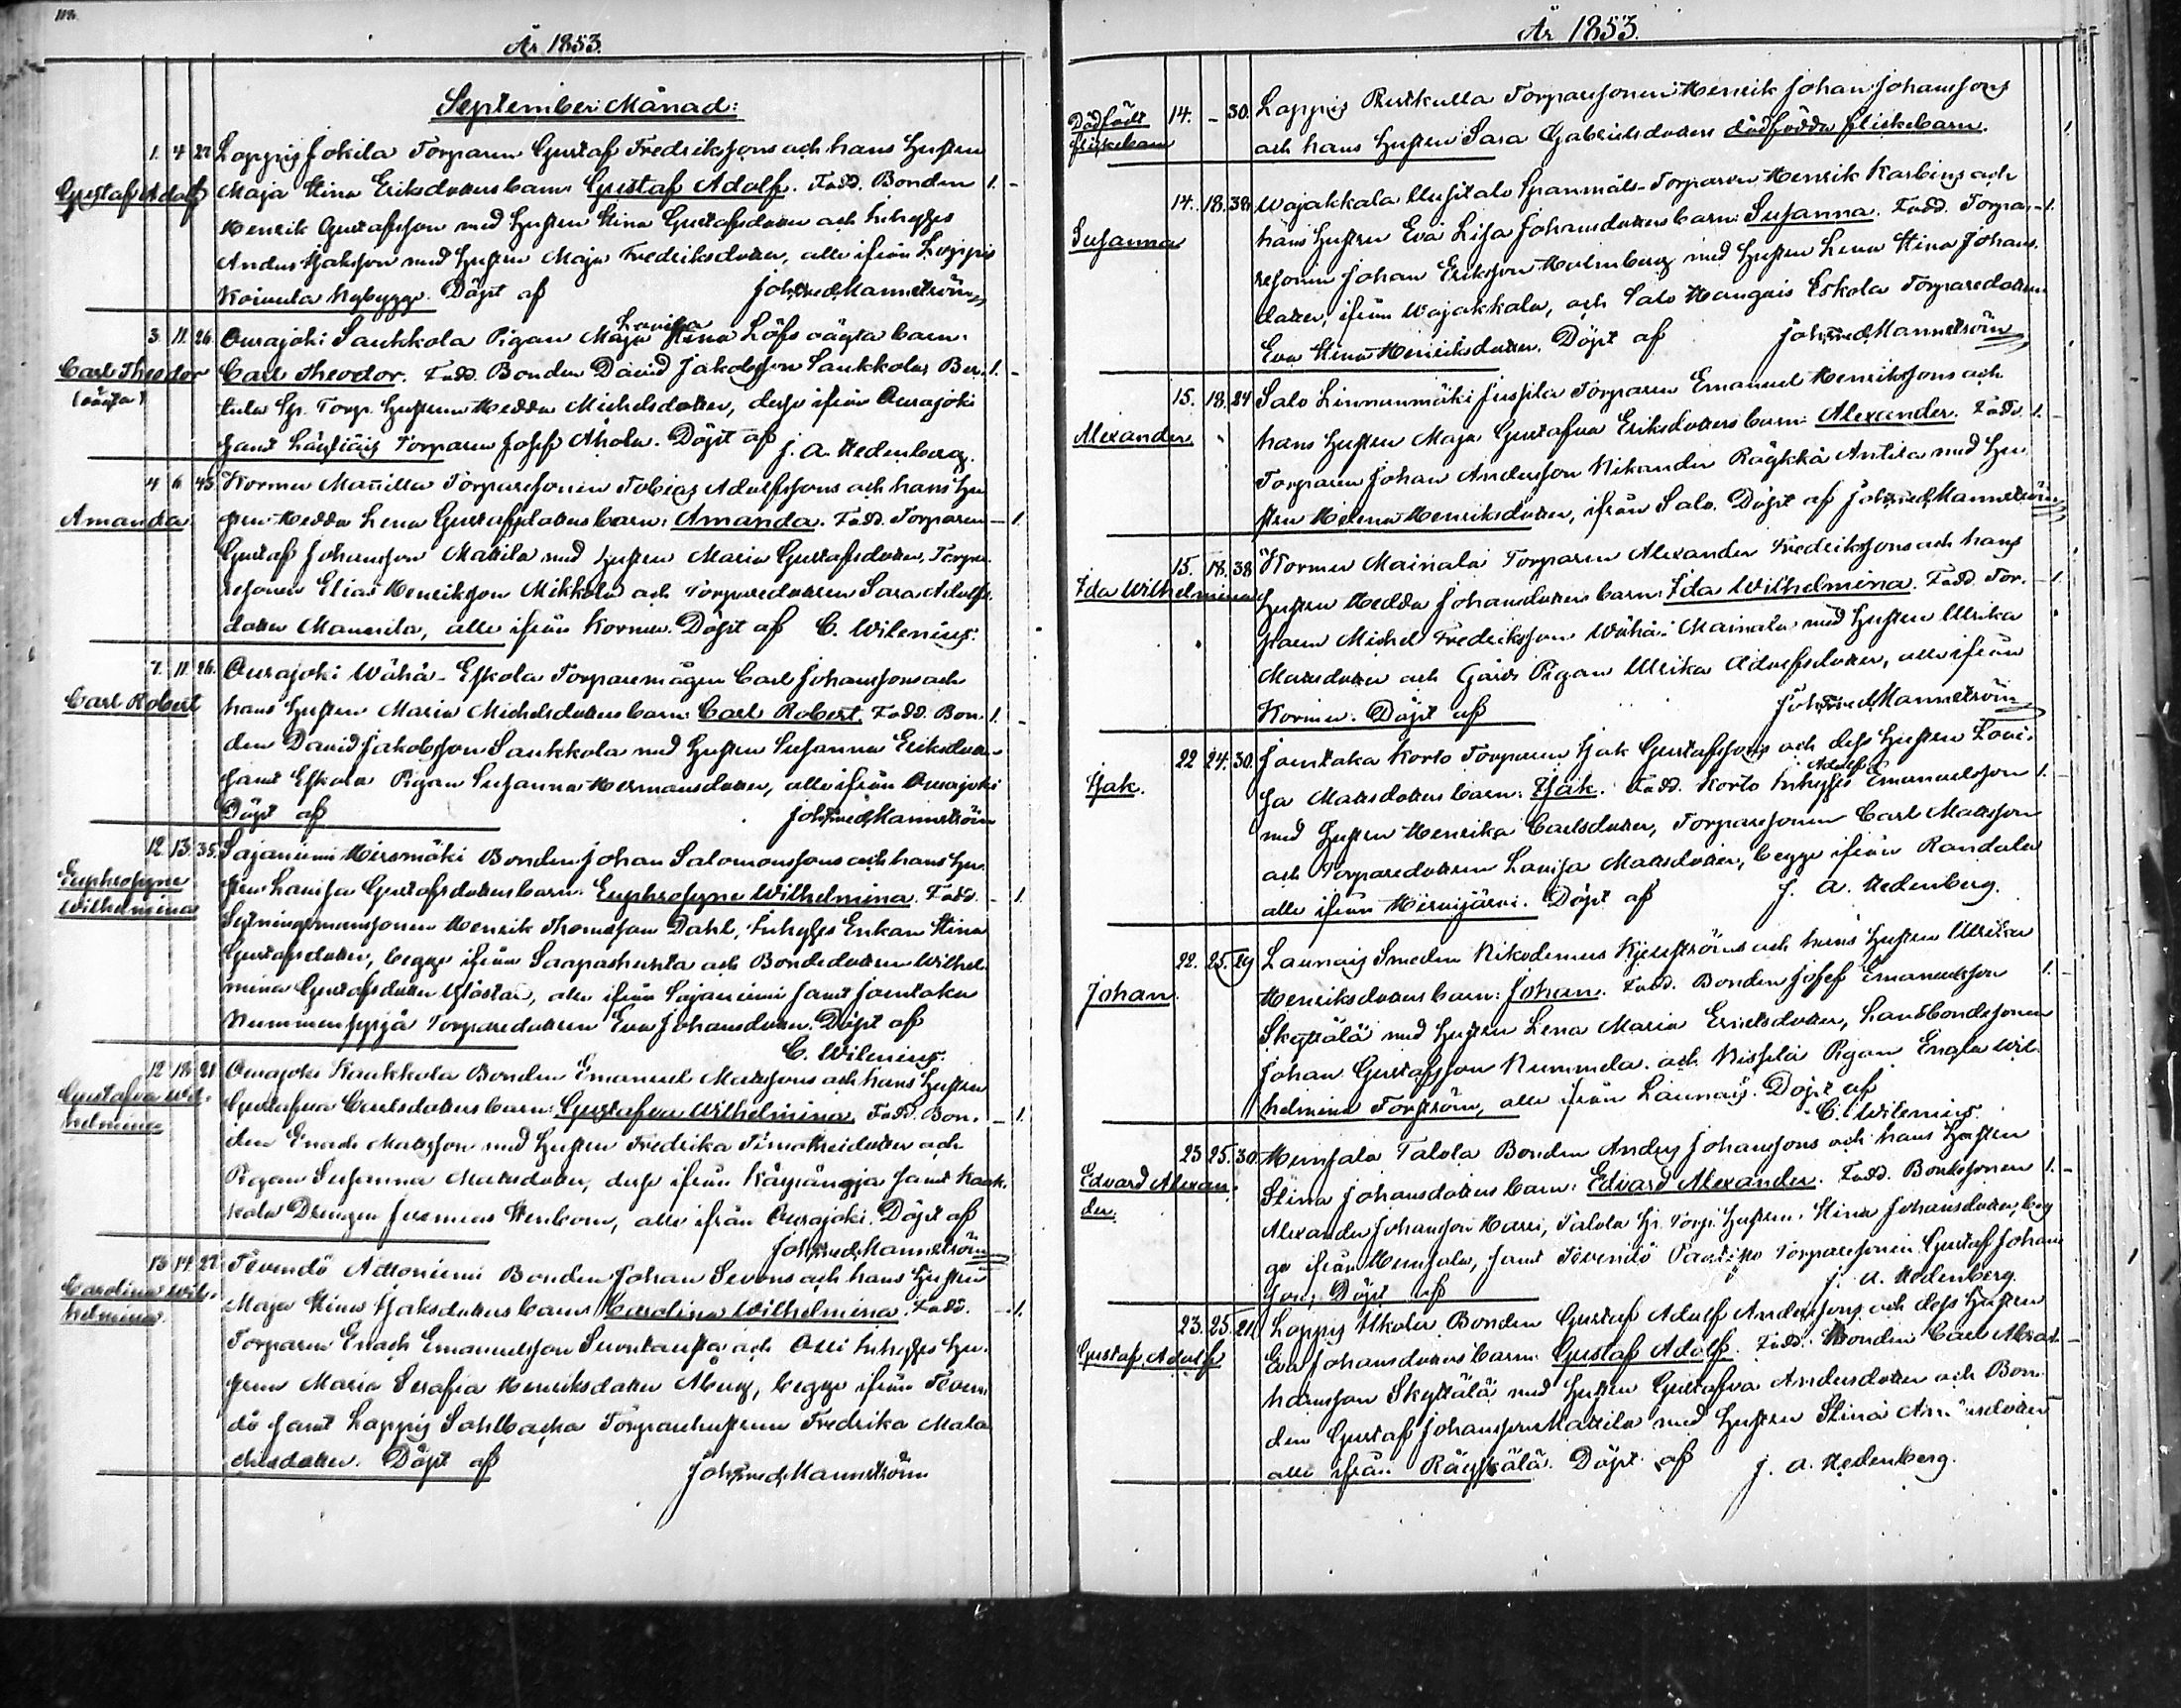 År 1853.
September Månad:
1. 4 27 Loppis Jokila Torparen Gustaf Fredrikssons och hans Hustru
Gustaf Adolf Maja Stina Eriksdotters barn: Gustaf Adolf. Fadd. Bonden 1. -
Henrik Gustafsson med Hustru Stina Gustafsdotter och Inhyses
Anders Isaksson med Hustru Maja Fredriksdotter, alle ifrån Loppis
Koivula Nybygge. Döpt af Joh. Fred. Mannström
3 11 26 Ourajoki Saukkola Pigan Maja Lovisa Löfs oägta barn:
Carl Theodor Carl Theodor. Fadd. Bonden David Jakobsson Saukkola, 1. -
(oägta) Torp. Hustrun Hedda Michelsdotter, desse ifrån Ourajoki
samt Torparen Josef Ahola. Döpt af J. A. Hedenberg.
4 6 45 Kormu Torparesonen Tobias Adolfssons och hans Hu
Amanda stru Hedda Lena Gustafsdotters barn: Amanda. Fadd. Torparen - 1.
Gustaf Johansson Mattila med Hustru Maria Gustafsdotter, Torpa-
resonen Elias Henriksson Mikkola och Torparedottren Sara Adolfs-
dotter Mannila, alle ifrån Kormu. Döpt af C. Wilenius:
7. 11 26. Ourajoki Wähä-Eskola Torparemågen Carl Johanssons och
Carl Robert hans Hustru Maria Michelsdotters barn: Carl Robert. Fadd. Bon- 1. -
den David Jakobsson Saukkola med Hustru Susanna Eriksdotter
samt Eskola Pigan Susanna Hermansdotter, alle ifrån Ourajoki
Döpt af Joh. Fred. Mannström
12 13 35. Sajaniemi Hirsmäki Bonden Johan Salomonssons och hans Hu-
Euphrosyne stru Lovisa Gustafsdotters barn: Euphrosyne Wilhelmina. Fadd. - 1.
Wilhelmina Henrik Thomasson Dahl, Inhyses Enkan Stina
Gustafsdotter, begge ifrån Saapashuhta och Bondedottren Wilhel-
mina Gustafsdotter, alle ifrån Sajaniemi samt Joentaka
Torparedottren Eva Johansdotter. Döpt af
C. Wilenius:
12 18 21 Ourajoki Kaukkola Bonden Emanuel Matssons och hans Hustru
Gustafva Wil- Gustafva Carlsdotters barn: Gustafva Wilhelmina. Fadd. Bon- - 1.
helmina den Enoch Matsson med Hustru Fredrika och
Pigan Susanna Matsdotter, desse ifrån samt Kauk-
kola Drengen Jeremias Stenborn, alle ifrån Ourajoki. Döpt af
Joh. Fred. Mannström
13 14 27 Tevendö Bonden Johan Sevons och hans Hustru
Carolina Wil- Maja Stina Isaksdotters barn: Carolina Wilhelmina. Fadd. - 1.
helmina Torparen Enoch Emanuelsson och Inhyses Hu-
strun Maria Serafia Henriksdotter Åberg, begge ifrån Teven
dö samt Loppis Torparehustrun Fredrika Mala
chiasdotter. Döpt af Joh. Fred. Mannström
År 1853.
Dödfödt 14. - 30. Loppis Torparesonen Henrik Johan Johanssons
flickebarn och hans Hustru Sara Gabrielsdotters dödfödda flickebarn. 1.
14. 18. 38 Wojakkala Uusitalo Spanmåls-Torparen Henrik Karbins och
Susanna hans Hustru Eva Lisa Johansdotters barn: Susanna. Fadd. Torpa- - 1.
resonen Johan Eriksson Malmberg med Hustru Lena Stina Johans-
dotter, ifrån Wojakkala, och Salo Haugais Eskola Torparedottren
Eva Stina Henriksdotter. Döpt af Joh. Fred. Mannström
15. 18. 24 Salo Linnanmäki Jussila Torparen Emanuel Henrikssons och
Alexander hans Hustru Maja Gustafva Eriksdotters barn: Alexander. Fadd. 1. -
Torparen Johan Andersson Nikander Räykkä Antila med Hu
stru Helena Henriksdotter, ifrån Salo. Döpt af Joh. Fred. Mannström
15. 18. 38 Kormu Mainala Torparen Alexander Fredrikssons och hans
Ida Wilhelmina Hustru Hedda Johansdotters barn: Ida Wilhelmina. Fadd. Tor- - 1.
paren Michel Fredriksson Wähä-Mainala med Hustru Ulrika
Matsdotter och Gårds Pigan Ulrika Adolfsdotter, alle ifrån
Kormu. Döpt af Joh. Fred. Mannström
22 24. 30. Joentaka Korto Torparen Isak Gustafssons och dess Hustru Lovi-
Isak. sa Matsdotters barn: Isak. Fadd. Korto Inhyses Adolf Emanuelsson 1. -
med Hustru Henrika Carlsdotter, Torparesonen Carl Matsson
och Torparedottren Lovisa Matsdotter, begge ifrån Randala
alle ifrån Hirvijärvi. Döpt af J. A. Hedenberg.
22. 25. 29 Launois Smeden Nikodemus och hans Hustru Ulrika
Johan. Henriksdotters barn: Johan. Fadd. Bonden Josef Emanuelsson 1. -
Skyttälä med Hustru Lena Maria Eriksdotter, Landbondesonen
Johan Gustafsson Nummela och Nissilä Pigan Engla Wil-
helmina Forsström, alle ifrån Launois. Döpt af
C. Wilenius.
23 25. 30. Hunsala Talola Bonden Anders Johanssons och hans Hustru
Edvard Alexan- Stina Johansdotters barn: Edvard Alexander. Fadd. Bondesonen 1. -
der Alexander Johansson Harri, Talola Torp. Hustrun Stina Johansdotter, beg
ge ifrån Hunsala, samt Tevendö Torparesonen Gustaf Johans
son, Döpt af J. A. Hedenberg.
23. 25. 21 Loppis Ukola Bonden Gustaf Adolf Anderssons och dess Hustru
Gustaf Adolf Eva Johansdotters barn: Gustaf Adolf. Fadd. Bonden Carl Abra- -
hamsson Skyttälä med Hustru Gustafva Andersdotter och Bon-
den Gustaf Johansson Mattila med Hustru Stina Andersdotter
alle ifrån Räyskälä. Döpt af J. A. Hedenberg.